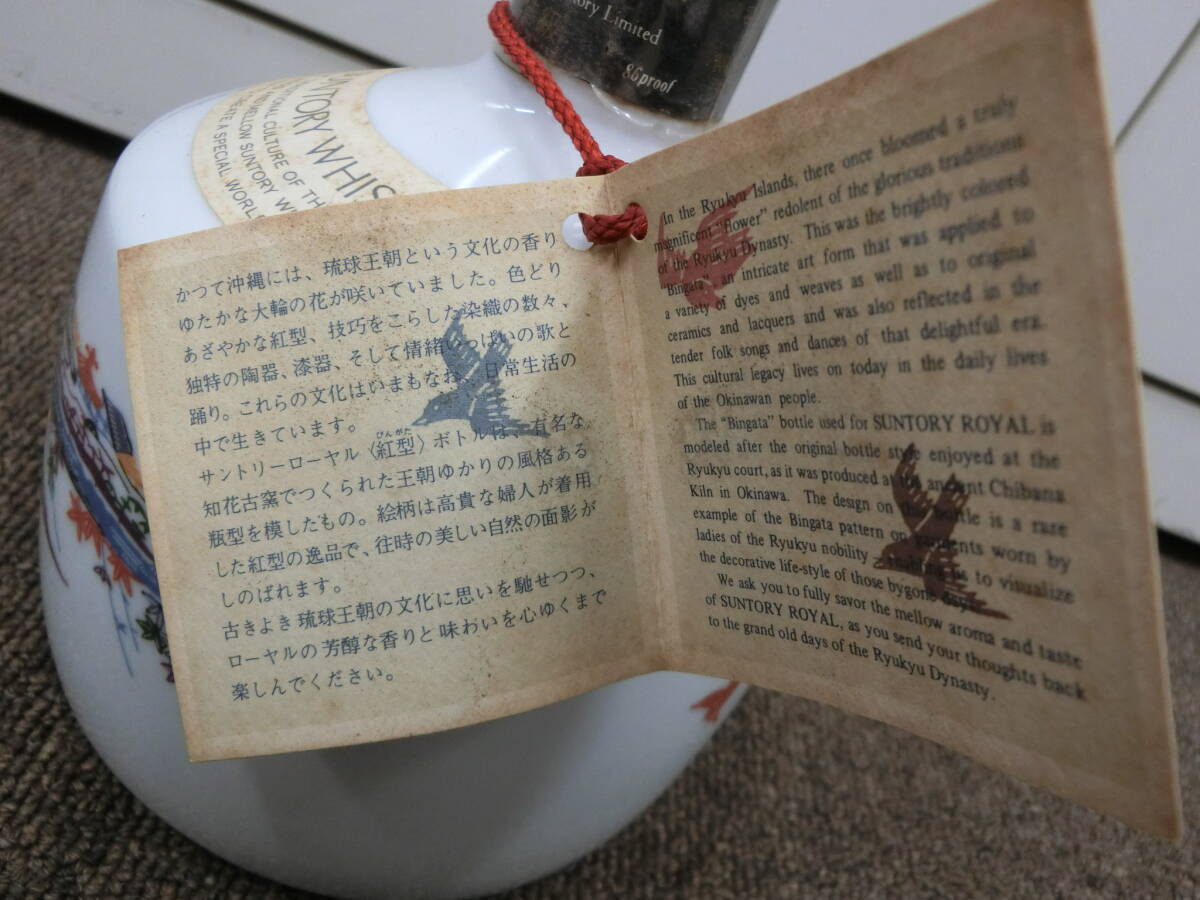 ory Limited
86proof
UNTORY WHIS
ONAL CULTURE OF TH
MELLOW SUNTORY W
ATE A SPECIAL WORL
かつて沖縄には、琉球王朝という文化の香り
ゆたかな大輪の花が咲いていました。色どり
あざやかな紅型、技巧をこらした染織の数々、
独特の陶器、漆器、そして情緒いっぱいの歌と
踊り。これらの文化はいまもなお、日常生活の
中で生きています。
サントリーローヤル〈紅型〉ボトルは、有名な
びんがた
知花古窯でつくられた王朝ゆかりの風格ある
瓶型を模したもの。絵柄は高貴な婦人が着用
した紅型の逸品で、往時の美しい自然の面影が
しのばれます。
古きよき琉球王朝の文化に思いを馳せつつ、
ローヤルの芳醇な香りと味わいを心ゆくまで
楽しんでください。
In the Ryukyu Islands, there once bloomed a truly
magnificent "flower" redolent of the glorious traditions
of the Ryukyu Dynasty. This was the brightly colored
"Bingata", an intricate art form that was applied to
a variety of dyes and weaves as well as to original
ceramics and lacquers and was also reflected in the
tender folk songs and dances of that delightful era.
This cultural legacy lives on today in the daily lives
of the Okinawan people.
The "Bingata" bottle used for SUNTORY ROYAL is
modeled after the original bottle style enjoyed at the
Ryukyu court, as it was produced at the ancient Chibana
Kiln in Okinawa. The design on this bottle is a rare
example of the Bingata pattern on garments worn by
ladies of the Ryukyu nobility enabling us to visualize
the decorative life-style of those bygone days.
We ask you to fully savor the mellow aroma and taste
of SUNTORY ROYAL, as you send your thoughts back
to the grand old days of the Ryukyu Dynasty.